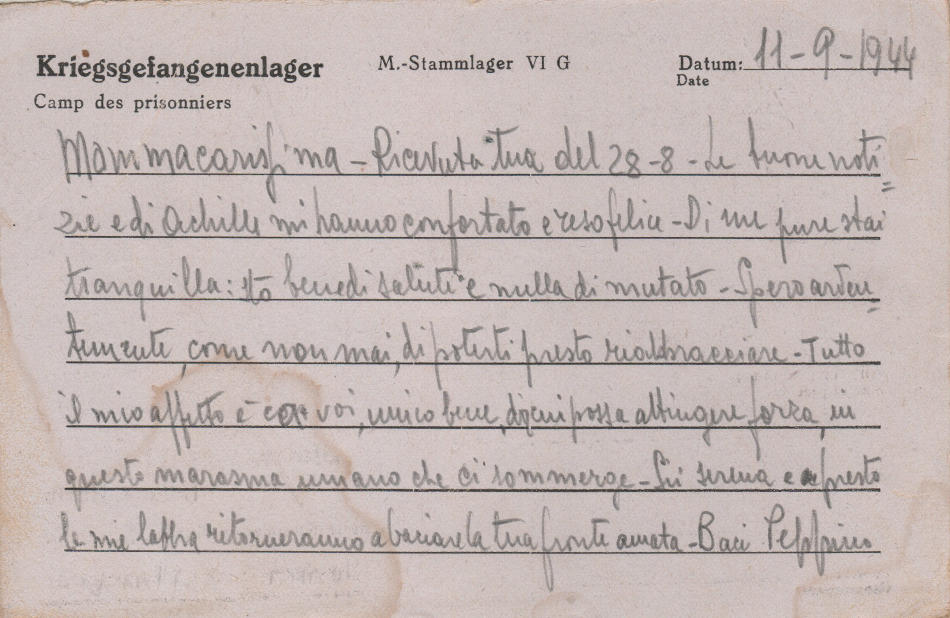 Kriegsgefangenenlager M.-Stammlager VI G Datum: 11-9-1944
Camp des prisonniers Date
Mammacarissima - Ricevuta tua del 28-8 - Le buone noti=
zie e di Achille mi hanno confortato e reso felice - Di me pure stai
tranquilla: sto bene di salute e nulla di mutato - Spero arden=
temente, come non mai, di poterti presto riabbracciare - Tutto
il mio affetto è con voi, unico bene, di cui possa attingere forza, in
questo marasma umano che ci sommerge - Sii serena e presto
le mie labbra ritorneranno a baciare la tua fronte amata - Baci Peppino